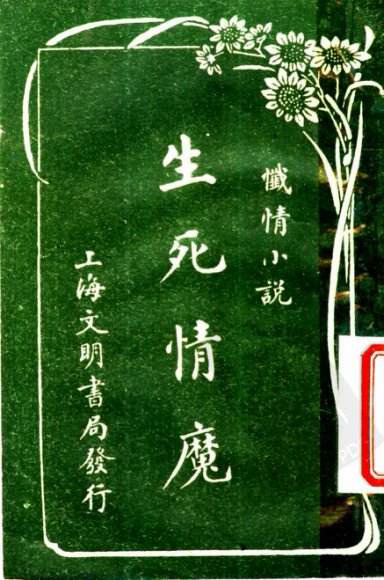 懺情小説
生死情魔
上海文明書局發行